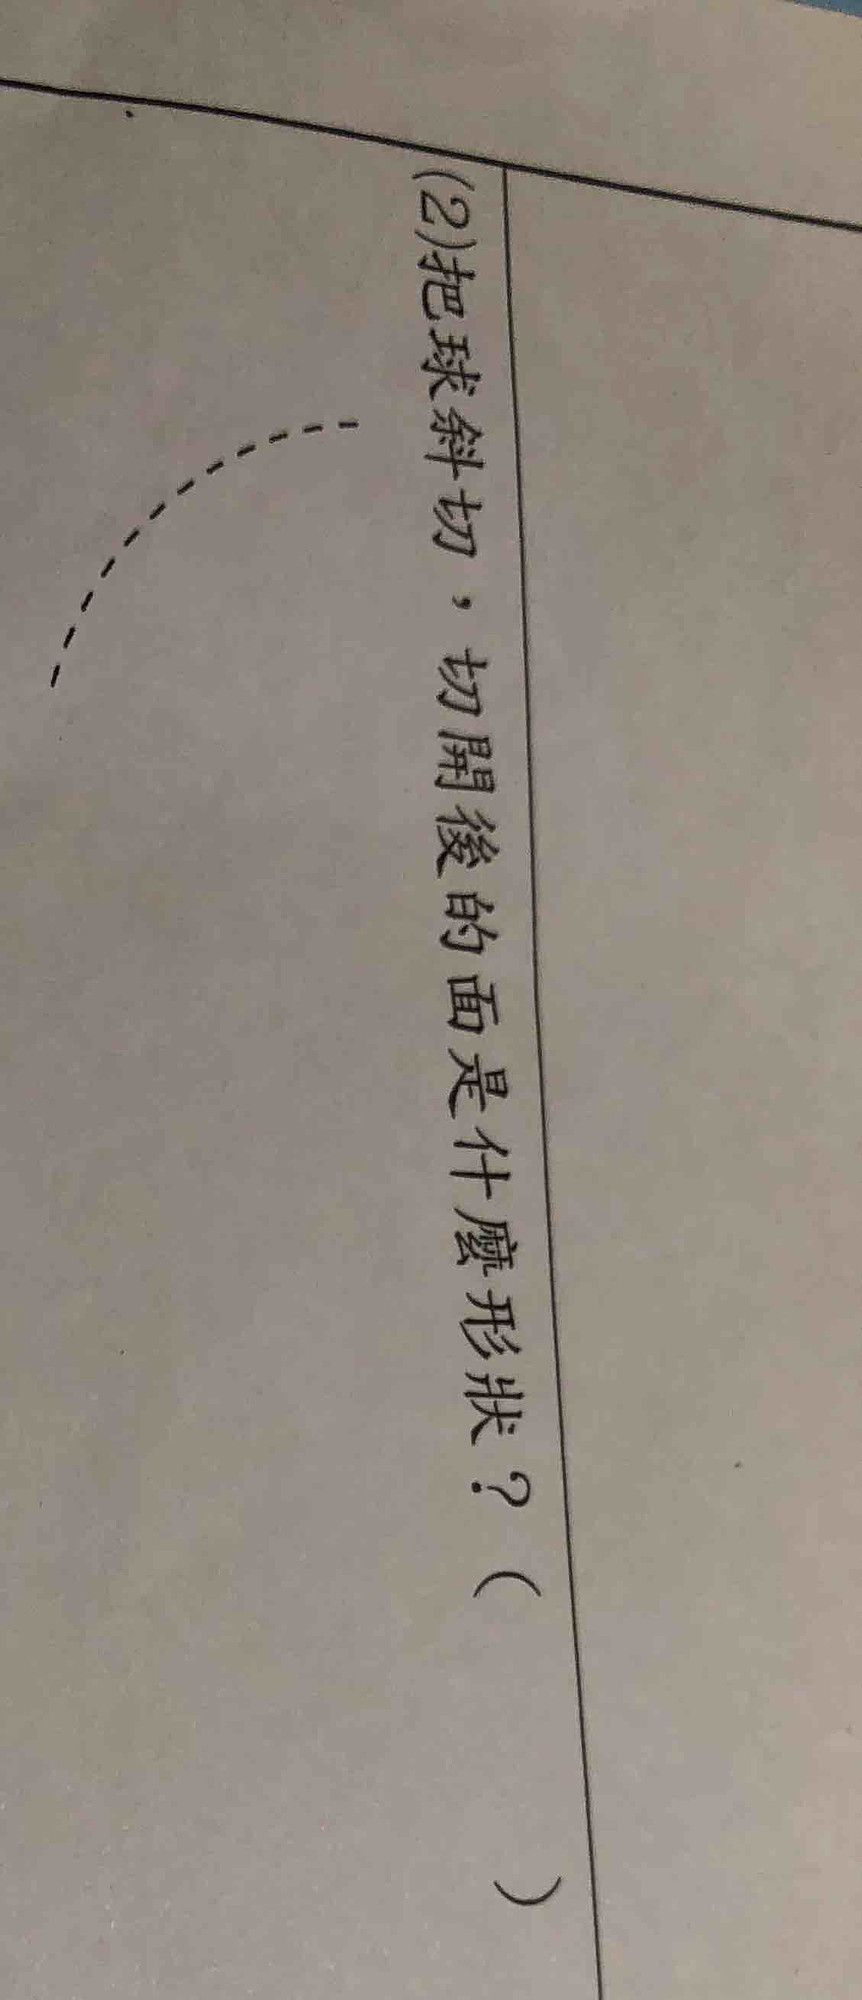 (2)把球斜切，切開後的面是什麼形狀？（　　　）